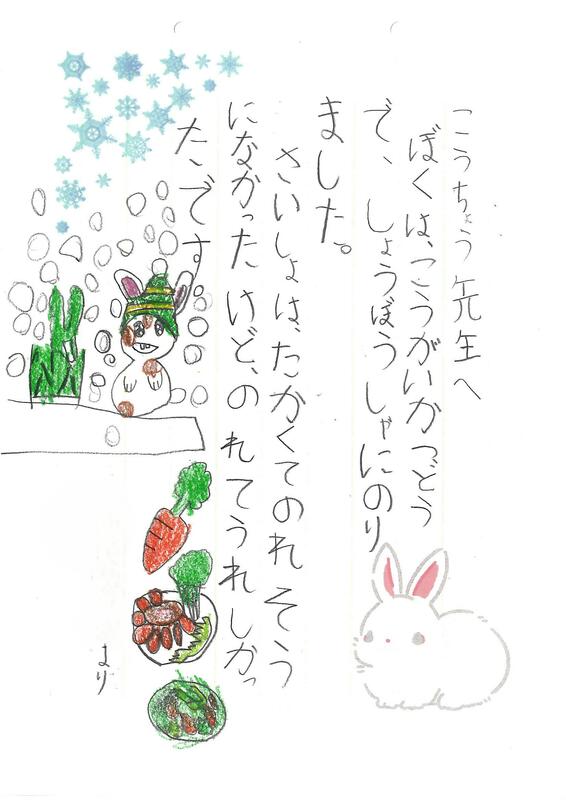 こうちょう先生へ
ぼくは、こうがいかつどう
で、しょうぼうしゃにのり
ました。
さいしょは、たかくてのれそう
になかったけど、のれてうれしかっ
たです
より